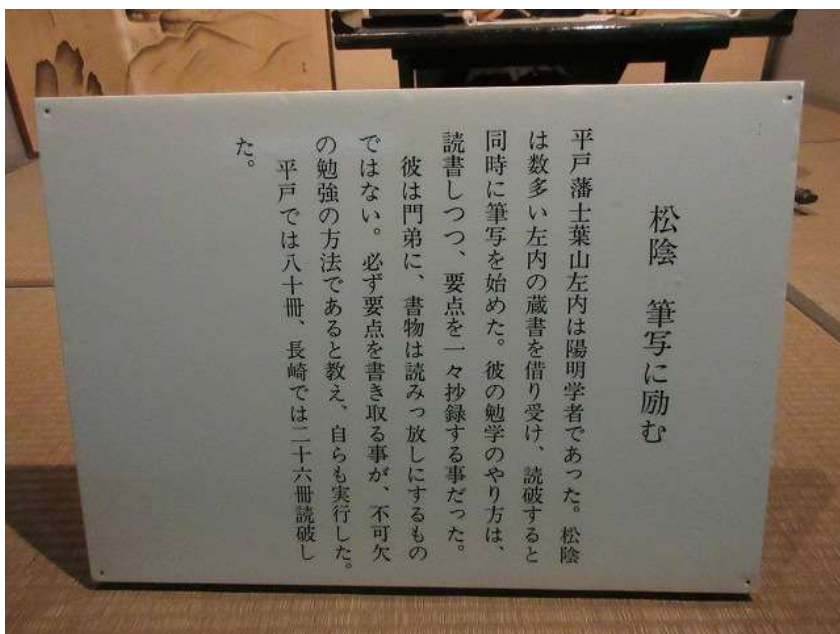 松陰　筆写に励む
平戸藩士葉山左内は陽明学者であった。松陰
は数多い左内の蔵書を借り受け、読破すると
同時に筆写を始めた。彼の勉学のやり方は、
読書しつつ、要点を一々抄録する事だった。
　彼は門弟に、書物は読みっ放しにするもの
ではない。必ず要点を書き取る事が、不可欠
の勉強の方法であると教え、自らも実行した。
　平戸では八十冊、長崎では二十六冊読破し
た。